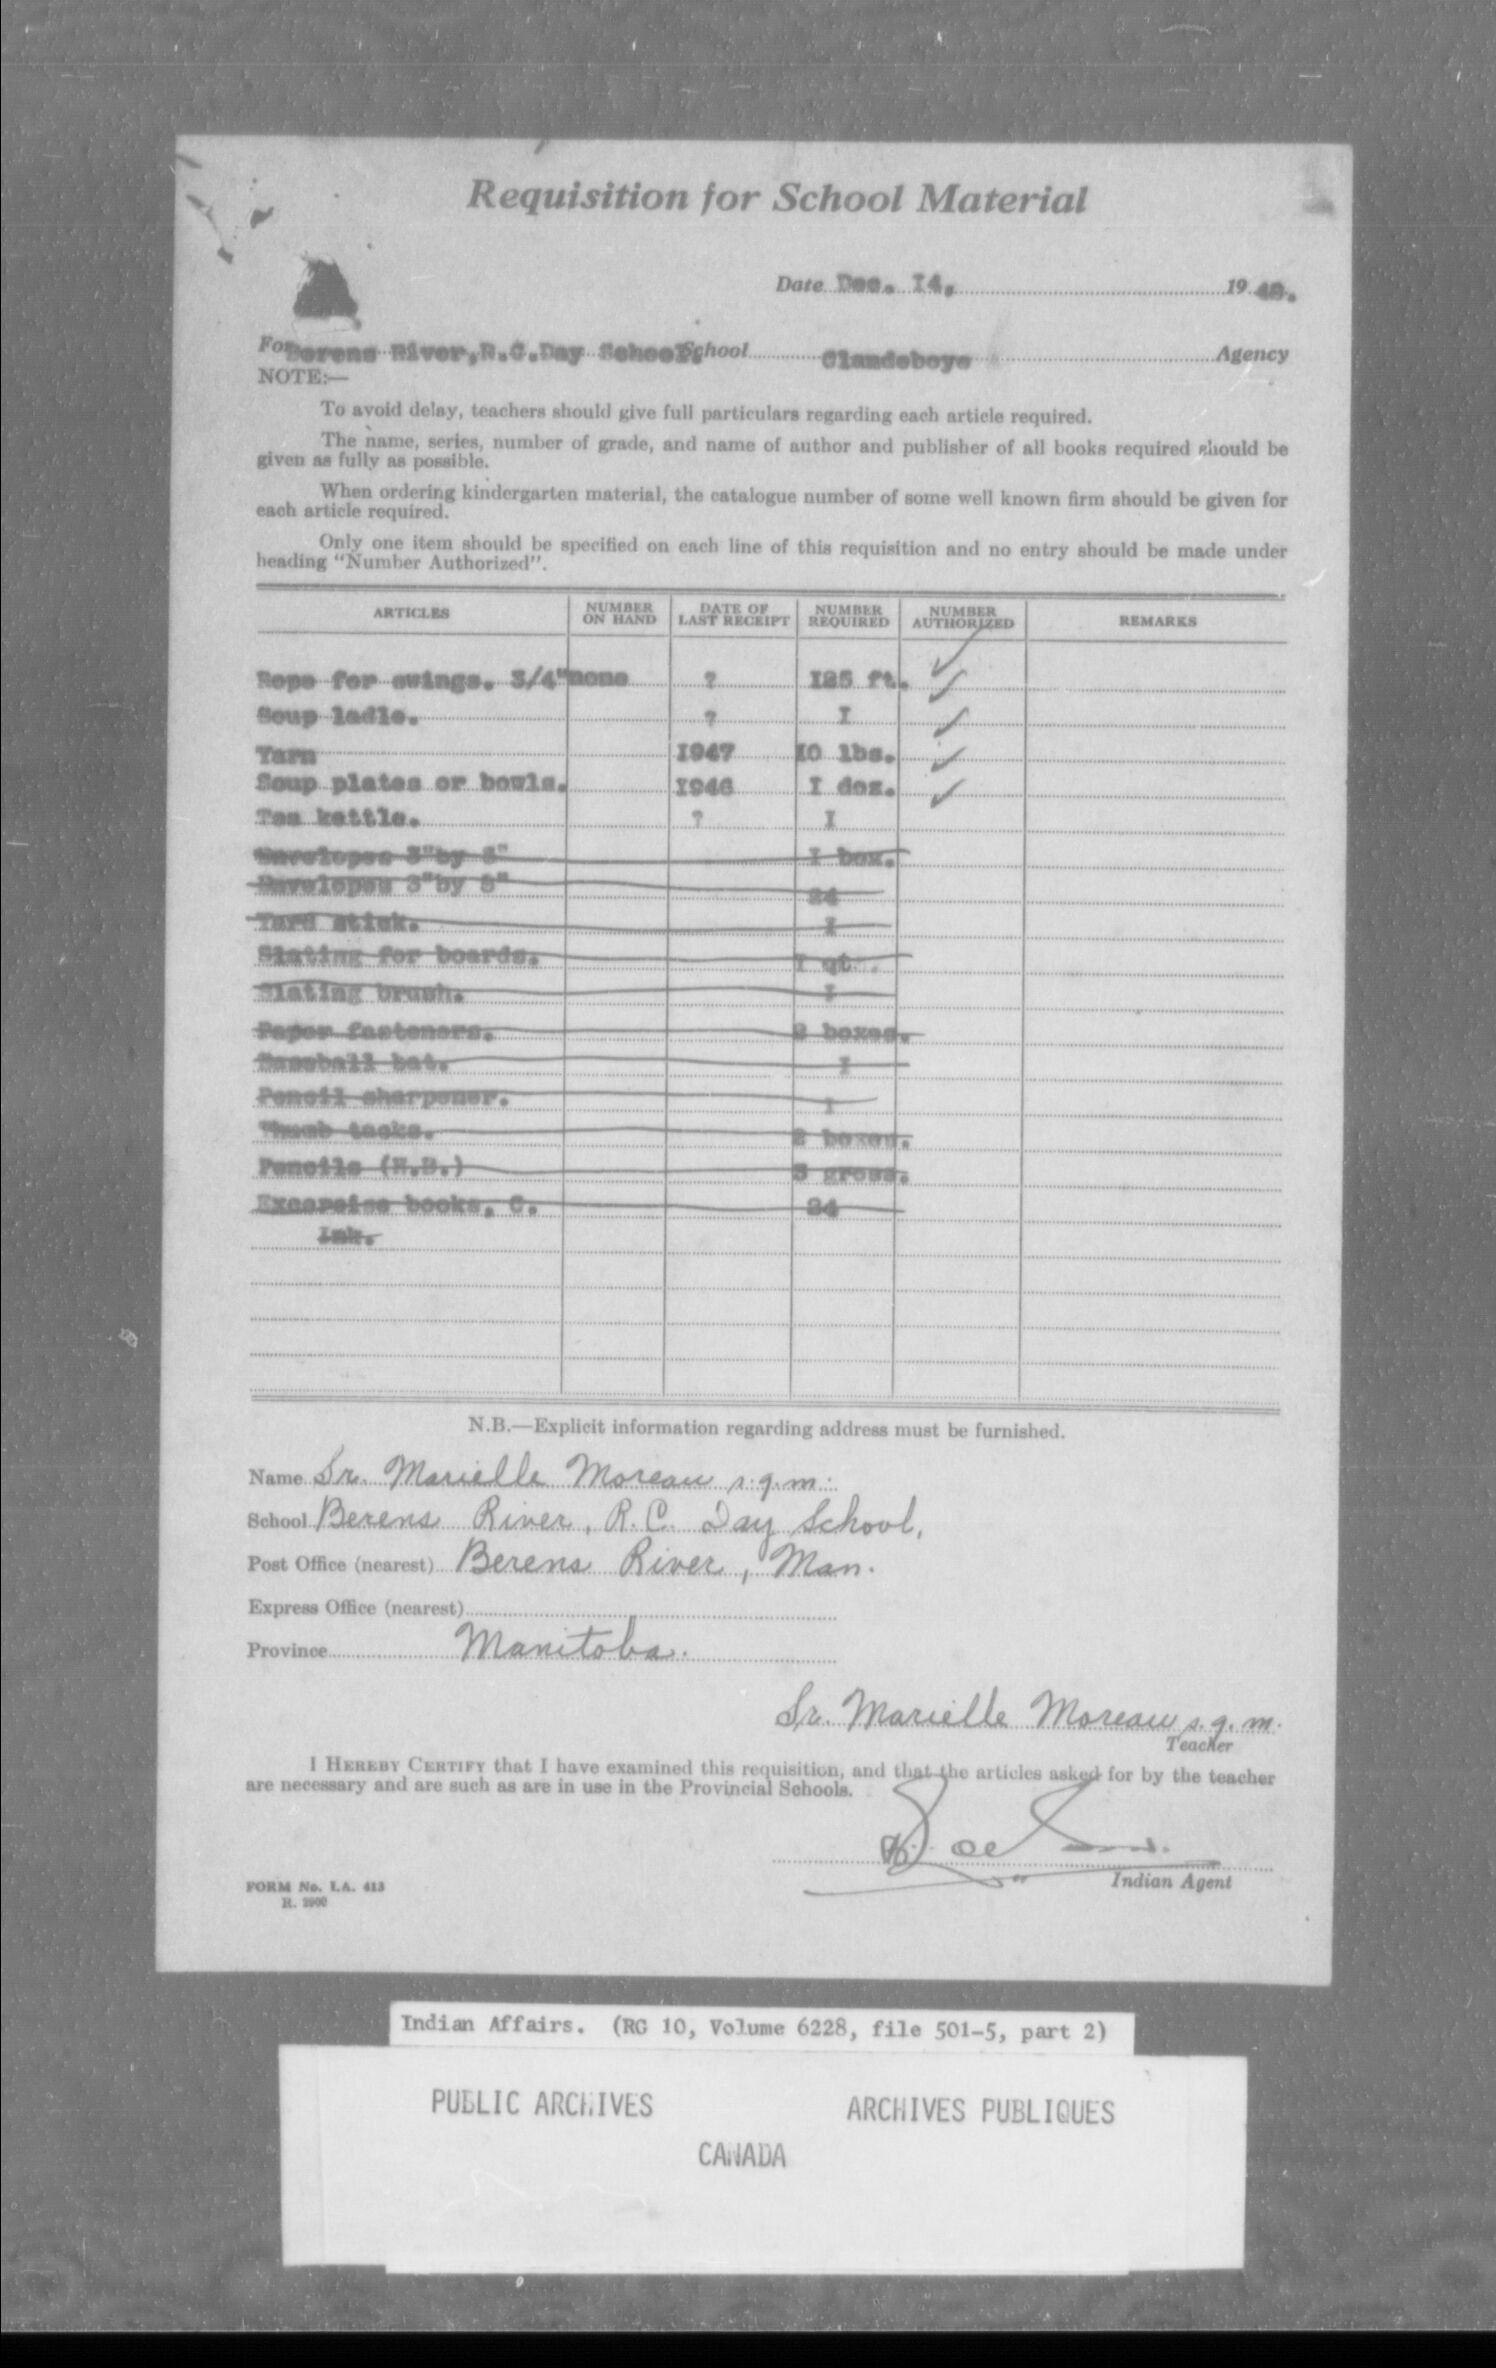 Requisition for School Material
Date Dec. I4, 1948.
For Berens River,R.C.Day School. School Clandeboye Agency
NOTE:—
To avoid delay, teachers should give full particulars regarding each article required.
The name, series, number of grade, and name of author and publisher of all books required should be
given as fully as possible.
When ordering kindergarten material, the catalogue number of some well known firm should be given for
each article required.
Only one item should be specified on each line of this requisition and no entry should be made under
heading "Number Authorized".
ARTICLES NUMBER ON HAND DATE OF LAST RECEIPT NUMBER REQUIRED NUMBER AUTHORIZED REMARKS
Rope for swings. 3/4" none ? I25 ft. ✓
Soup ladle. ? I ✓
Yarn I947 I0 lbs. ✓
Soup plates or bowls. I946 I doz. ✓
Tea kettle. ? I
Envelopes 3"by 6" I box.
Envelopes 3"by 5" 24
Yard stick. I
Slating for boards. I qt.
Slating brush. I
Paper fasteners. 2 boxes.
Baseball bat. I
Pencil sharpener. I
Thumb tacks. 2 boxes.
Pencils (H.B.) 3 gross.
Excercise books, C. 24
Ink.
N.B.—Explicit information regarding address must be furnished.
Name Sr. Marielle Moreau s.g.m.
School Berens River, R.C. Day School,
Post Office (nearest) Berens River, Man.
Express Office (nearest)
Province Manitoba.
Sr. Marielle Moreau s.g.m.
Teacher
I HEREBY CERTIFY that I have examined this requisition, and that the articles asked for by the teacher
are necessary and are such as are in use in the Provincial Schools.
Indian Agent
FORM No. I.A. 413
Indian Affairs. (RG 10, Volume 6228, file 501-5, part 2)
PUBLIC ARCHIVES ARCHIVES PUBLIQUES
CANADA